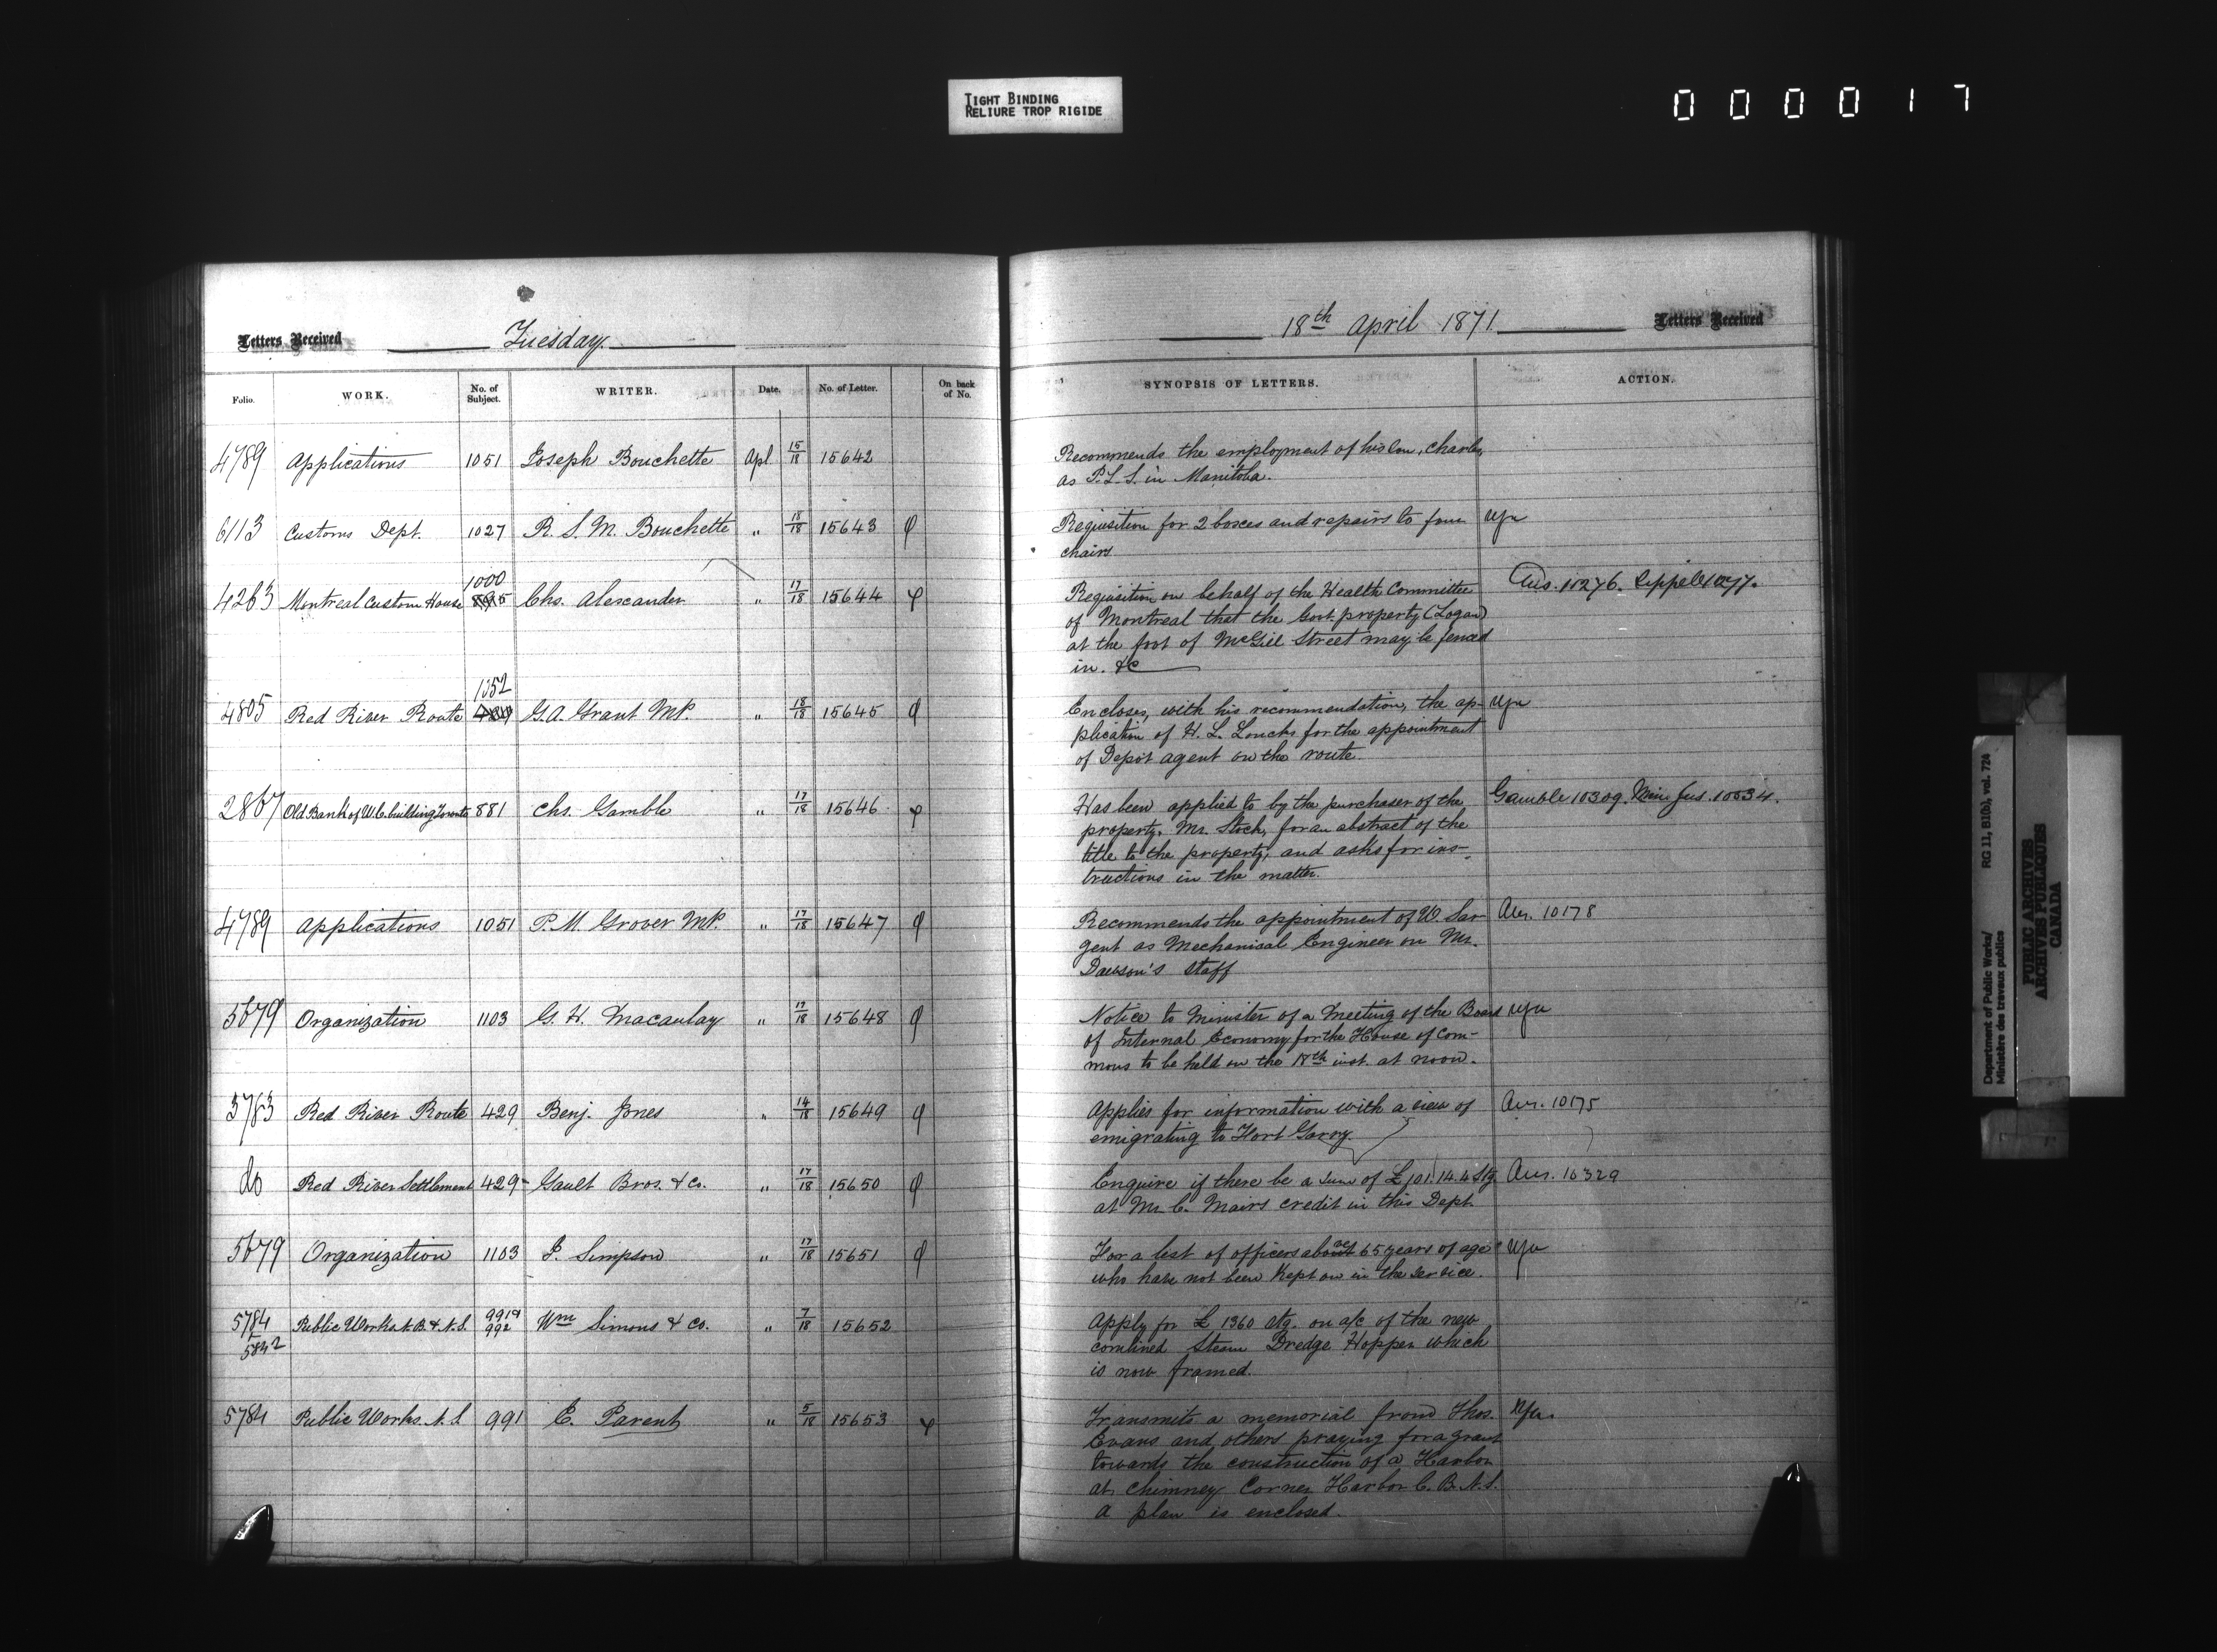 TIGHT BINDING
RELIURE TROP RIGIDE
000017
Letters Received
Tuesday.
18th April 1871.
Letters Received
Folio.
WORK.
No. of Subject.
WRITER.
Date.
No. of Letter.
On back of No.
SYNOPSIS OF LETTERS.
ACTION.
4789 Applications 1051 Joseph Bouchette Apl 15/18 15642
Recommends the employment of his Son, Charles,
as P.L.S. in Manitoba.
6113 Customs Dept. 1027 R. S. M. Bouchette " 18/18 15643
Requisition for 2 boxes and repairs to four
chairs
1000
4263 Montreal Custom House Chs. Alexander " 17/18 15644
Requisition on behalf of the Health Committee
of Montreal that the Govt. property (Logan)
at the foot of McGill Street may be fenced
in. &c
1352
4805 Red River Route G.A. Grant MP. " 18/18 15645
Encloses, with his recommendation, the ap-
plication of H. L. Loucks for the appointment
of Depôt agent on the route.
2867 Old Bank of U.C. building Toronto 881 Chs. Gamble " 17/18 15646
Has been applied to by the purchaser of the Gamble 10309. Min Jus. 10534.
property, Mr. Stock, for an abstract of the
title to the property; and asks for ins-
tructions in the matter.
4789 Applications 1051 P. M. Grover MP. " 17/18 15647
Recommends the appointment of W. Sar- Ans. 10178
gent as Mechanical Engineer on Mr.
Dawson's staff
5679 Organization 1103 G. H. Macaulay " 17/18 15648
Notice to Minister of a Meeting of the Board
of Internal Economy for the House of Com-
mons to be held on the 18th inst. at noon.
5783 Red River Route 429 Benj. Jones " 14/18 15649
Applies for information with a view of Ans. 10175
emigrating to Fort Garry.
do Red River Settlement 429 Gault Bros. & Co. " 17/18 15650
Enquire if there be a Sum of £101.14.4 Stg Ans. 10329
at Mr C. Mairs credit in this Dept.
5679 Organization 1103 J. Simpson " 17/18 15651
For a list of officers above 65 years of age
who have not been kept on in the service.
5784 Public Works N.B. & N.S. 991 Wm Simons & Co. " 7/18 15652
5842 992
Apply for £ 1360 stg. on a/c of the new
combined Steam Dredge Hopper which
is now framed.
5784 Public Works. N.S 991 E. Parent " 5/18 15653
Transmits a memorial from Thos.
Evans and others praying for a grant
towards the construction of a Harbor
at Chimney Corner Harbor C. B. N.S.
A plan is enclosed.
Department of Public Works/ RG 11, B1(b), vol. 724
Ministère des travaux publics
PUBLIC ARCHIVES
ARCHIVES PUBLIQUES
CANADA